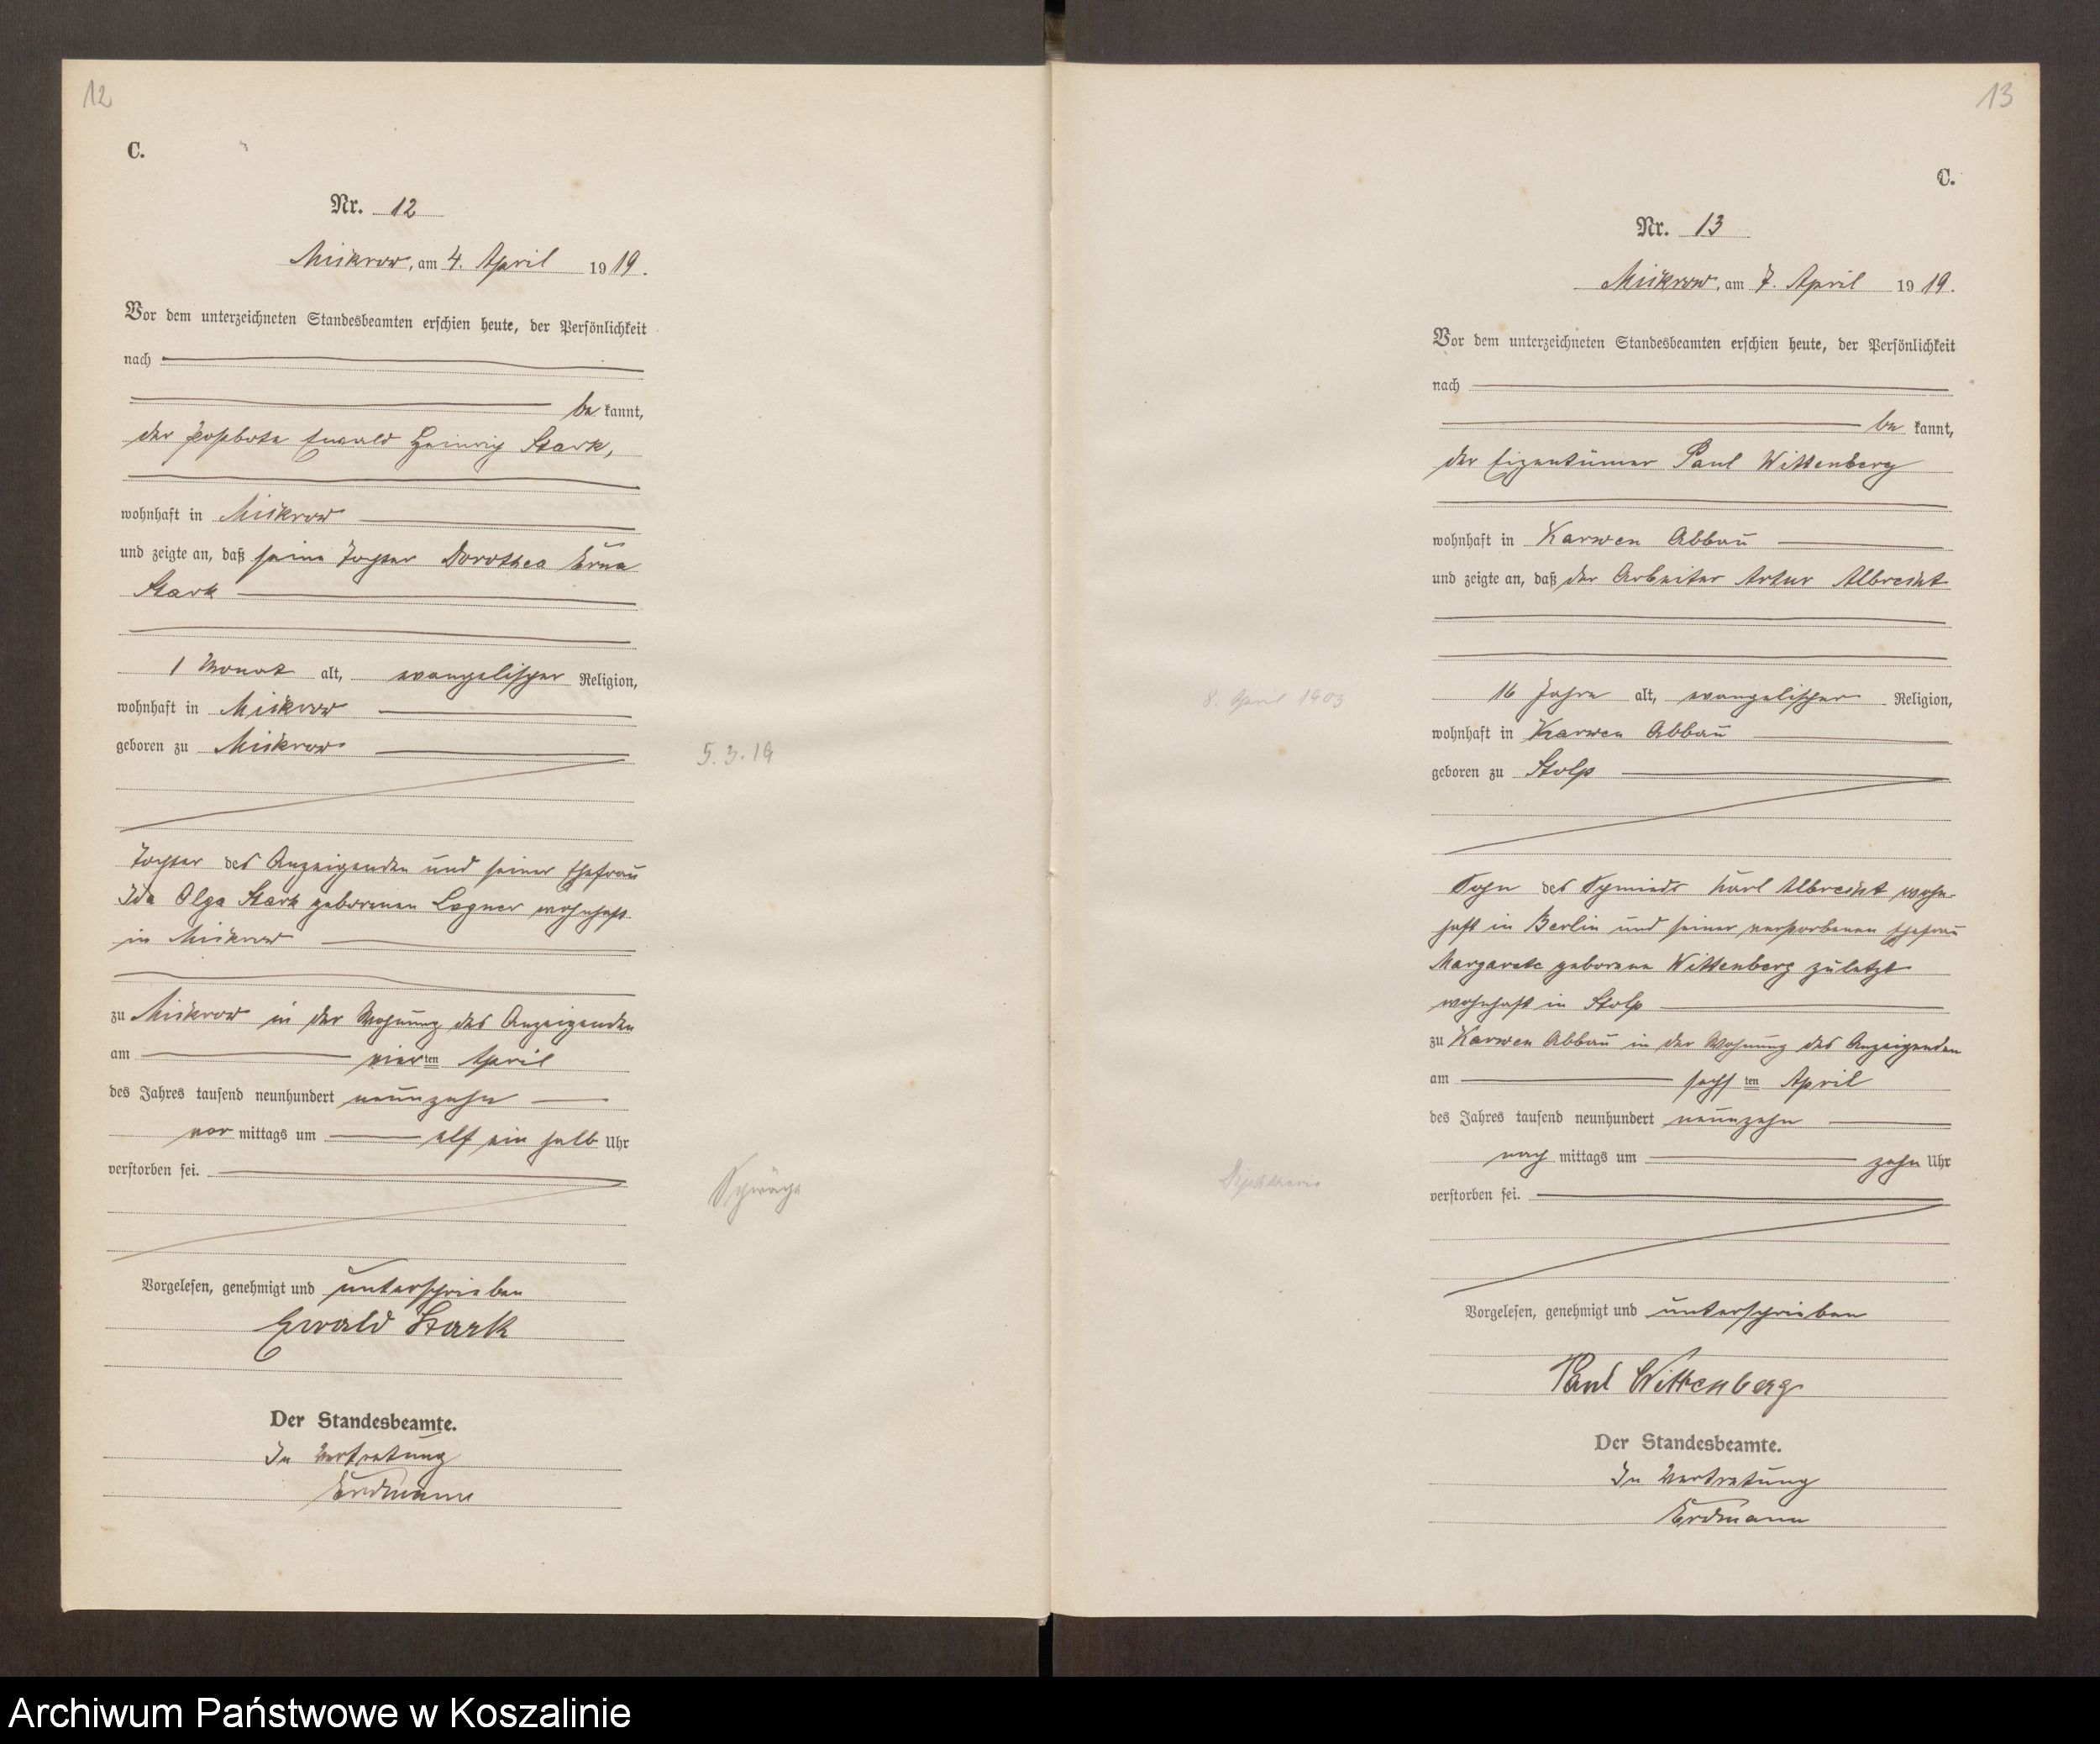 12
C.
Nr. 12
Mickrow, am 4. April 1919.
Vor dem unterzeichneten Standesbeamten erschien heute, der Persönlichkeit
nach
be kannt,
der Postbote Ewald Heinrich Stark,
wohnhaft in Mickrow
und zeigte an, daß seine Tochter Dorothea Erna
Stark
1 Monat alt, evangelischer Religion,
wohnhaft in Mickrow
geboren zu Mickrow
5.3.19
Tochter des Anzeigenden und seiner Ehefrau
Ida Olga Stark geborenen Lagner wohnhaft
in Mickrow
zu Mickrow in der Wohnung des Anzeigenden
am vier ten April
des Jahres tausend neunhundert neunzehn
vor mittags um elf ein halb Uhr
verstorben sei.
Schwäche
Vorgelesen, genehmigt und unterschrieben
Ewald Stark
Der Standesbeamte.
In Vertretung
Erdmann
13
C.
Nr. 13
Mickrow, am 7. April 1919.
Vor dem unterzeichneten Standesbeamten erschien heute, der Persönlichkeit
nach
be kannt,
der Eigentümer Paul Wittenberg
wohnhaft in Karwen Abbau
und zeigte an, daß der Arbeiter Artur Albrecht
16 Jahre alt, evangelischer Religion,
8. April 1903
wohnhaft in Karwen Abbau
geboren zu Stolp
Sohn des Schmieds Karl Albrecht wohn-
haft in Berlin und seiner verstorbenen Ehefrau
Margarete geborene Wittenberg zuletzt
wohnhaft in Stolp
zu Karwen Abbau in der Wohnung des Anzeigenden
am sechs ten April
des Jahres tausend neunhundert neunzehn
nach mittags um zehn Uhr
verstorben sei.
Diphtherie
Vorgelesen, genehmigt und unterschrieben
Paul Wittenberg
Der Standesbeamte.
In Vertretung
Erdmann
Archiwum Państwowe w Koszalinie